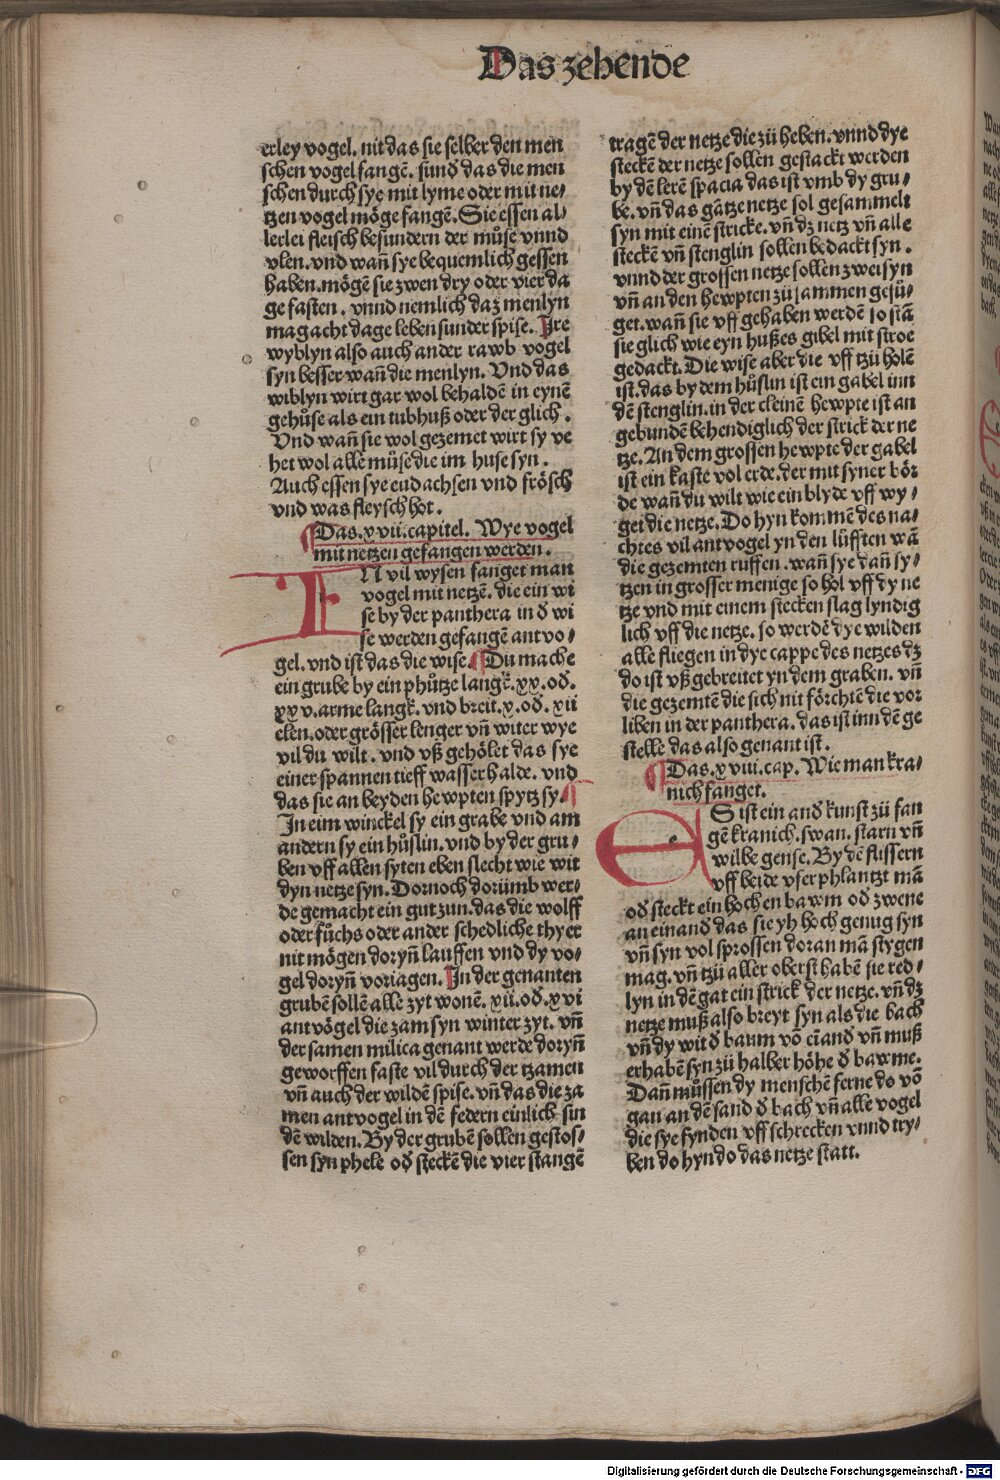 Das zehende
erley vogel. nit das sie selber den men
schen vogel fangē. sund̄ das die men
schen durch sye mit lyme oder mit ne⸗
tzen vogel möge fangē. Sie essen al⸗
lerlei fleisch besundern der můse vnnd
vlen. vnd wan̄ sye bequemlich gessen
haben. mögē sie zwen dry oder vier da
ge fasten. vnnd nemlich daz menlyn
mag acht dage leben sunder spise. Ire
wyblyn also auch ander rawb vogel
syn besser wan̄ die menlyn. Vnd das
wiblyn wirt gar wol behaldē in eynē
gehůse als ein tubhuß oder der glich.
Vnd wan̄ sie wol gezemet wirt sy ve
het wol alle můse die im huse syn.
Auch essen sye eudachsen vnd frösch
vnd was fleysch hot.
Das .xvii. capitel. Wye vogel
mit netzen gefangen werden.
IN vil wysen fanget man
vogel mit netzē. die ein wi
se by der panthera in d̄ wi
se werden gefangē antvo⸗
gel. vnd ist das die wise. Du mache
ein grube by ein phůtze langk̄. xx. od̄.
xxv. arme langk̄. vnd breit. x. od̄. xii
elen. oder grösser lenger vn̄ witer wye
vil du wilt. vnd vß gehölet das sye
einer spannen tieff wasser halde. vnd
das sie an beyden hewpten spytz sy.
In eim winckel sy ein grabe vnd am
andern sy ein hůslin. vnd by der gru⸗
ben vff allen syten eben slecht wie wit
dyn netze syn. Dornoch dorümb wer⸗
de gemacht ein gut zun. das die wolff
oder fůchs oder ander schedliche thyer
nit mögen doryn̄ lauffen vnd dy vo⸗
gel doryn̄ voriagen. In der genanten
grubē sollē alle zyt wonē. xii. od̄. xvi
antvögel die zam syn winter zyt. vn̄
der samen milica genant werde doryn̄
geworffen faste vil durch der tzamen
vn̄ auch der wildē spise. vn̄ das die za
men antvogel in dē federn einlich sin
dē wilden. By der grubē sollen gestos⸗
sen syn phele od̄ steckē die vier stangē
tragē der netze die zü heben. vnnd dye
steckē der netze sollen gestackt werden
by dē lerē spacia das ist vmb dy gru⸗
be. vn̄ das gātze netze sol gesammelt
syn mit einē stricke. vn̄ dz netz vn̄ alle
steckē vn̄ stenglin sollen bedackt syn.
vnnd der grossen netze sollen zwei syn
vn̄ an den hewpten zü sammen gefü⸗
get. wan̄ sie vff gehaben werdē so stā
sie glich wie eyn hußes gibel mit stroe
gedackt. Die wise aber die vff tzü holē
ist. das by dem hůslin ist ein gabel inn
dē stenglin. in der cleinē hewpte ist an
gebundē behendiglich der strick der ne
tze. An dem grossen hewpte der gabel
ist ein kaste vol erde. der mit syner bör
de wan̄ du wilt wie ein blyde vff wy⸗
get die netze. Do hyn kommē des na⸗
chtes vil antvogel yn den lüfften wā
die gezemten ruffen. wan̄ sye dan̄ sy⸗
tzen in grosser menige so hol vff dy ne
tze vnd mit einem stecken slag lyndig
lich vff die netze. so werdē dye wilden
alle fliegen in dye cappe des netzes dz
do ist vß gebreitet yn dem graben. vn̄
die gezemtē die sich nit förchtē die vor
liben in der panthera. das ist inn dē ge
stelle das also genant ist.
Das .xviii. cap. Wie man kra⸗
nich fanget.
ES ist ein and̄ kunst zü fan
gē kranich. swan. starn vn̄
wilbe gense. By dē flissern
vff beide vser phlantzt mā
od̄ steckt ein hochen bawm od̄ zwene
an einand̄ das sie yh hoch genug syn
vn̄ syn vol sprossen doran mā stygen
mag. vn̄ tzü aller oberst habē sie red⸗
lyn in dē gat ein strick der netze. vn̄ dz
netze muß also breyt syn als die bach
vn̄ dy wit d̄ baum vō eīand̄ vn̄ muß
erhabē syn zü halber höhe d̄ bawme.
Dan̄ můssen dy menschē ferne do vō
gan an dē sand d̄ bach vn̄ alle vogel
die sye fynden vff schrecken vnnd try⸗
ben do hyn do das netze statt.
Digitalisierung gefördert durch die Deutsche Forschungsgemeinschaft - DFG